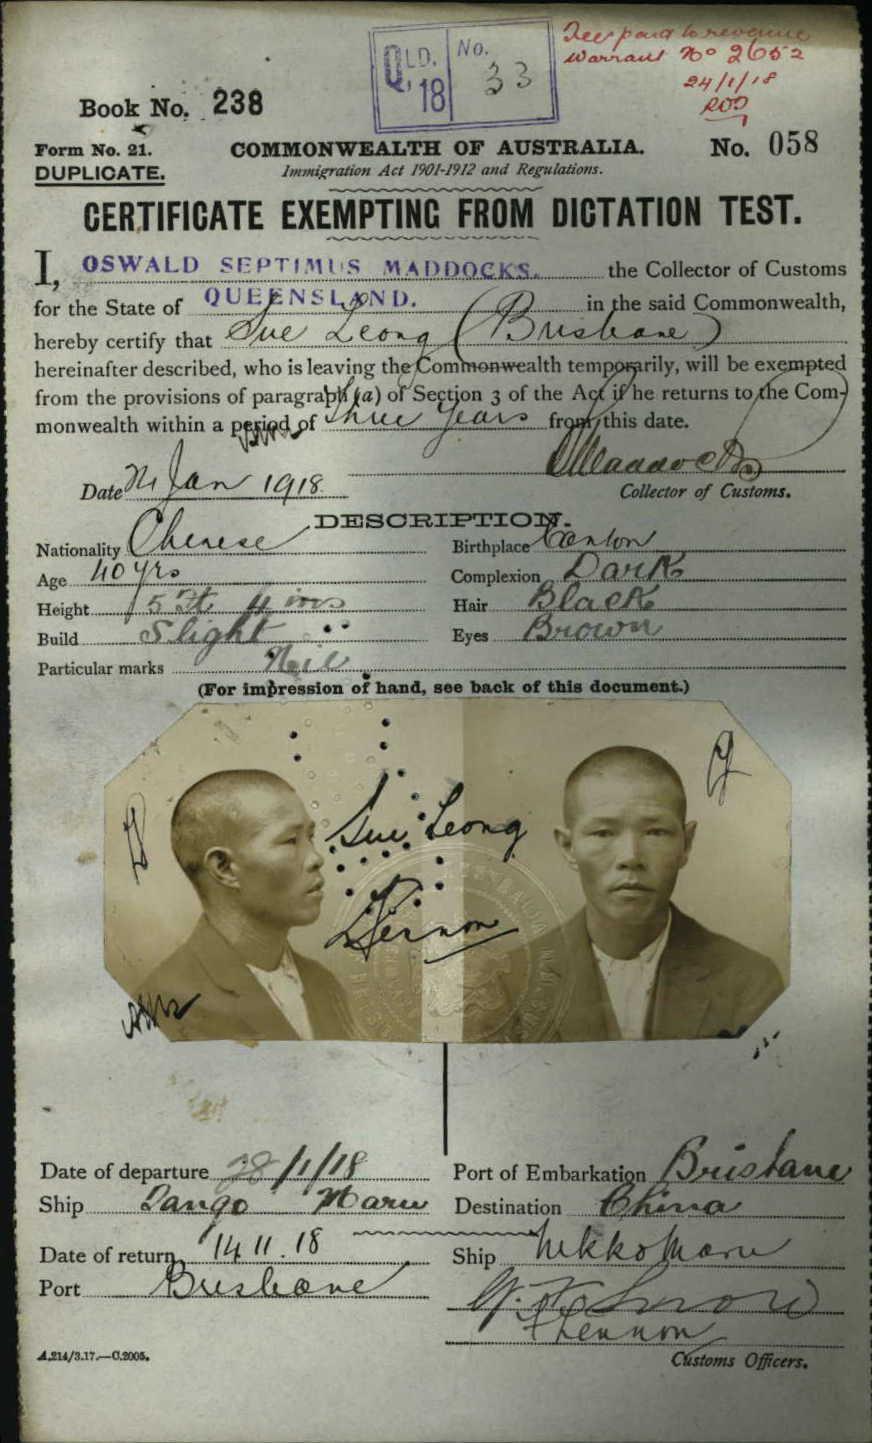 QLD. 18 No. 33
Fees paid to revenue
Warrant No 2652
24/1/18
Book No. 238
Form No. 21.
DUPLICATE.
COMMONWEALTH OF AUSTRALIA.
No. 058
Immigration Act 1901-1912 and Regulations.
CERTIFICATE EXEMPTING FROM DICTATION TEST.
I, OSWALD SEPTIMUS MADDOCKS. the Collector of Customs
for the State of QUEENSLAND. in the said Commonwealth,
hereby certify that Sue Leong (Brisbane)
hereinafter described, who is leaving the Commonwealth temporarily, will be exempted
from the provisions of paragraph (a) of Section 3 of the Act if he returns to the Com-
monwealth within a period of Three Years from this date.
Date Jan 1918 OMaddocks
Collector of Customs.
DESCRIPTION.
Nationality Chinese Birthplace Canton
Age 40 yrs Complexion Dark
Height 5 ft 4 ins Hair Black
Build Slight Eyes Brown
Particular marks Nil
(For impression of hand, see back of this document.)
Sue Leong
Date of departure 28/1/18 Port of Embarkation Brisbane
Ship Tango Maru Destination China
Date of return 14.11.18 Ship Nikko Maru
Port Brisbane
Customs Officers.
A.214/3.17.—C.2005.